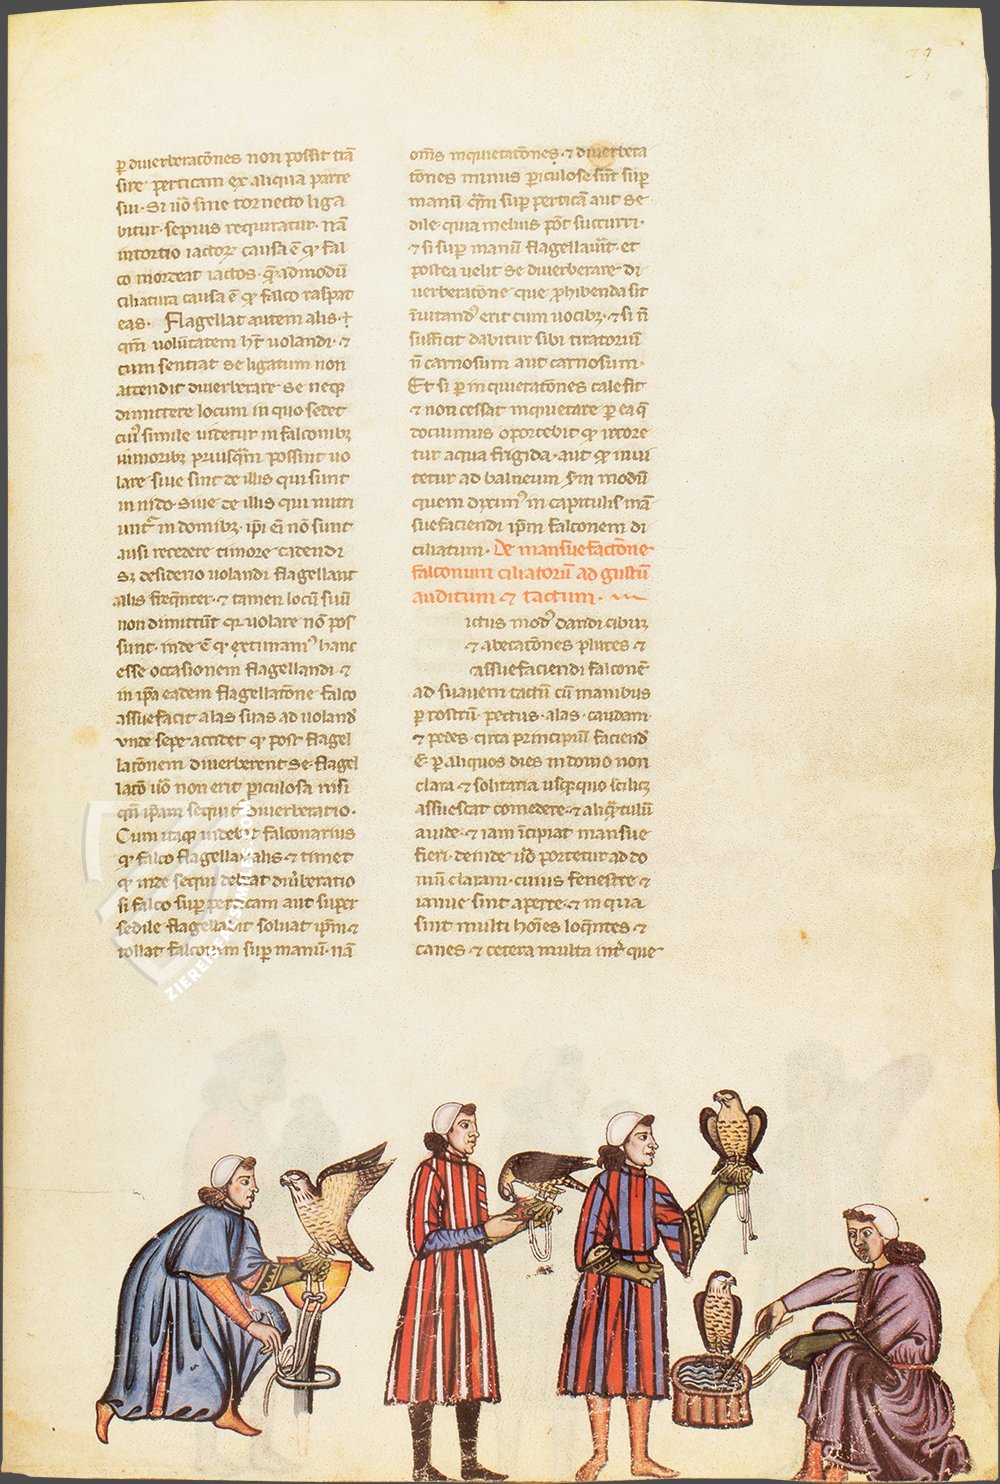 79
per diuerberatōnes non possit trā
sire perticam ex aliqua parte
sui. Si uō sine tornecto liga
bitur. sepius requiratur. nā
intortio iactoꝝ causa ē ꝙ fal
co mordeat iactos. ꝗ̄admodū
ciliatura causa ē ꝙ falco raspat
eas. Flagellat autem alis.
qm̄ uolūtatem hn̄t uolandi. ⁊
cum sentiat se ligatum non
attendit diuerberare se neqꝫ
dimittere locum in quo sedet
cuiꝰ simile uidetur in falconibꝫ
iunioribꝫ priusꝗ̄m possint uo
lare siue sint de illis qui sunt
in nido. siue de illis qui nutri
unt᷑ in domibꝫ. ip̄i eī nō sunt
ausi recedere timore cadendi
Sꝫ desiderio uolandi flagellant
alis freq̄nter. ⁊ tamen locū suū
non dimittūt qꝛ uolare nō pos
sunt. inde ē ꝙ extimamꝰ hanc
esse occasionem flagellandi. ⁊
in ip̄a eadem flagellatōne falco
assuefacit alas suas ad uolandꝰ
vnde sepe accidet ꝙ post flagel
latōnem diuerberent se. flagel
latō uō non erit ꝑiculosa nisi
qn̄ ip̄am sequit᷑ diuerberatio.
Cum itaqꝫ uidebit falconarius
ꝙ falco flagellat alis. ⁊ timet
ꝙ inde sequi debeat diūberatio
si falco suꝑ perticam aut super
sedile flagellabit soluat ip̄m. ⁊
tollat falconem suꝑ manū. nā
om̄s inquietatōnes. ⁊ diuerbera
tōnes minus ꝑiculose sūt suꝑ
manū ꝗ̄m suꝑ perticā aut se
dile. quia melius pōt succurri.
⁊ si suꝑ manū flagellauit᷑. et
postea uelit se diuerberare di
uerberatōne que ꝓhibenda sit
īuitandꝰ erit cum uocibꝫ. ⁊ si n̄
sufficit dabitur sibi tiratoriū
n̄ carnosum aut carnosum.
Et si ꝑ inquietatōnes calefit
⁊ non cessat inquietare ꝑ ea q̄
docuimus oportebit ꝙ irrore
tur aqua frigida. aut ꝙ inui
tetur ad balneum. scd̄m modū
quem diximꝰ in capitulis mā
suefaciendi ip̄m falconem di
ciliatum. De mansuefactōne
falconum ciliatorū ad gustū
auditum ⁊ tactum.
ictus modꝰ dandi cibuꝫ
⁊ abecatōnes plures ⁊
assuefaciendi falconē
ad suauem tactū cū manibus
ꝑ rostrū. pectus. alas. caudam
⁊ pedes. circa principiū faciendꝰ
ē. ꝑ aliquos dies in domo non
clara. ⁊ solitaria usqꝫquo scilicꝫ
assuescat comedere. ⁊ aliq̄tulū
auide. ⁊ iam īcipiat mansue
fieri. deinde uō portetur ad do
mū claram. cuius fenestre ⁊
ianue sint aperte. ⁊ in qua
sint multi hoīes loq̄ntes ⁊
canes. ⁊ cetera multa int᷑ que
ZIEREIS FACSIMILES.COM